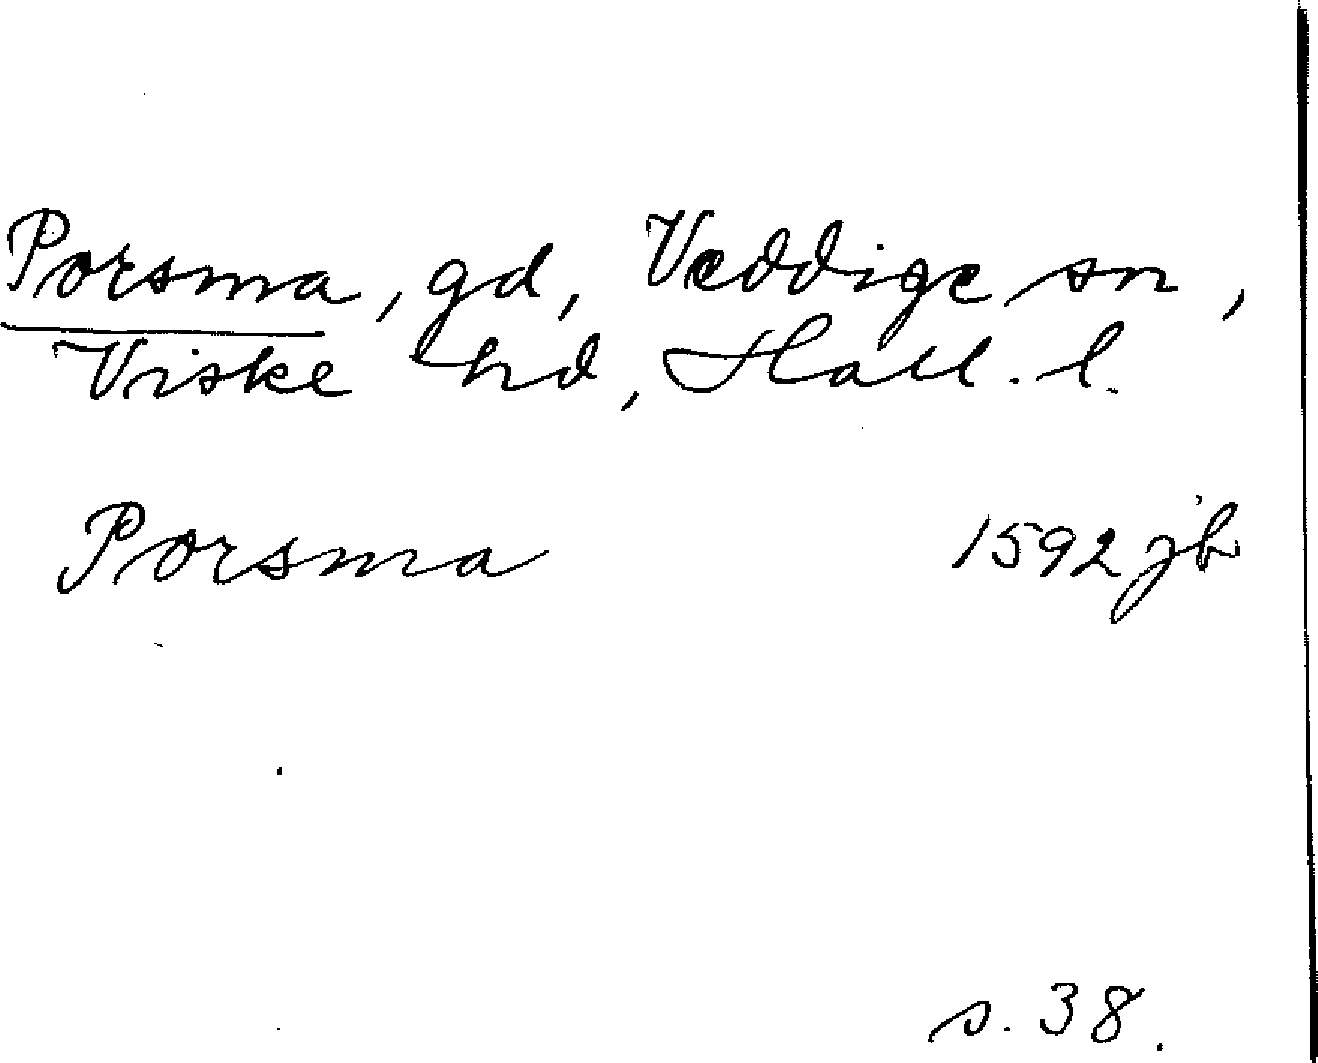 Porsma, gd, Veddige sn,
Viske hd, Hall. l.
Porsma 1592 jb
s. 38.